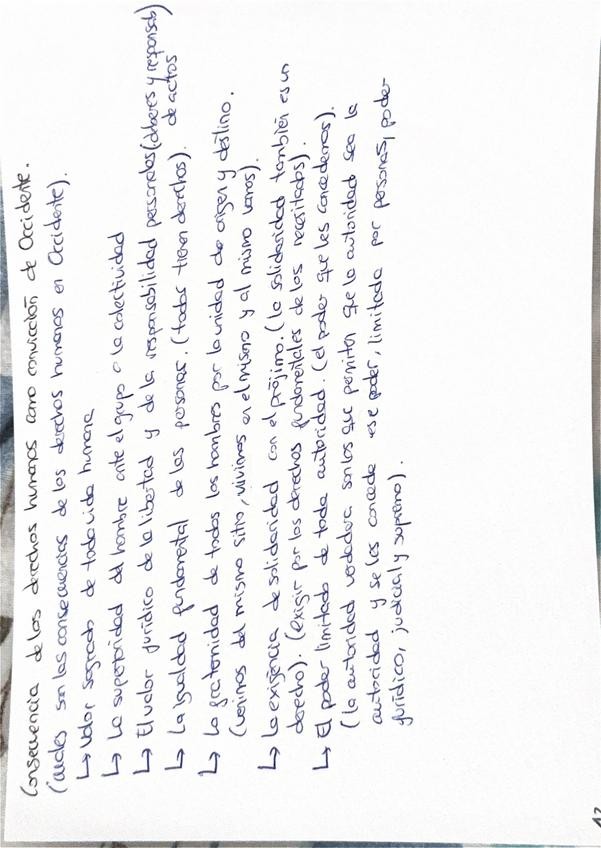 Consecuencia de los derechos humanos como convicción de Occidente.
(cuales son las consecuencias de los derechos humanos en Occidente).
↳ Valor sagrado de toda vida humana
↳ La superioridad del hombre ante el grupo o la colectividad
↳ El valor jurídico de la libertad y de la responsabilidad personales (deberes y responsab)
de actos
↳ La igualdad fundamental de las personas. (todos tienen derechos).
↳ La fraternidad de todos los hombres por la unidad de origen y destino.
(venimos del mismo sitio, vivimos en el mismo y al mismo vamos).
↳ La exigencia de solidaridad con el prójimo. (la solidaridad también es un
derecho). (exigir por los derechos fundamentales de los necesitados).
↳ El poder limitado de toda autoridad. (el poder que les concedemos).
(la autoridad verdadera son los que permiten que la autoridad sea la
autoridad y se les concede ese poder, limitada por personas, poder
jurídico, judicial y supremo).